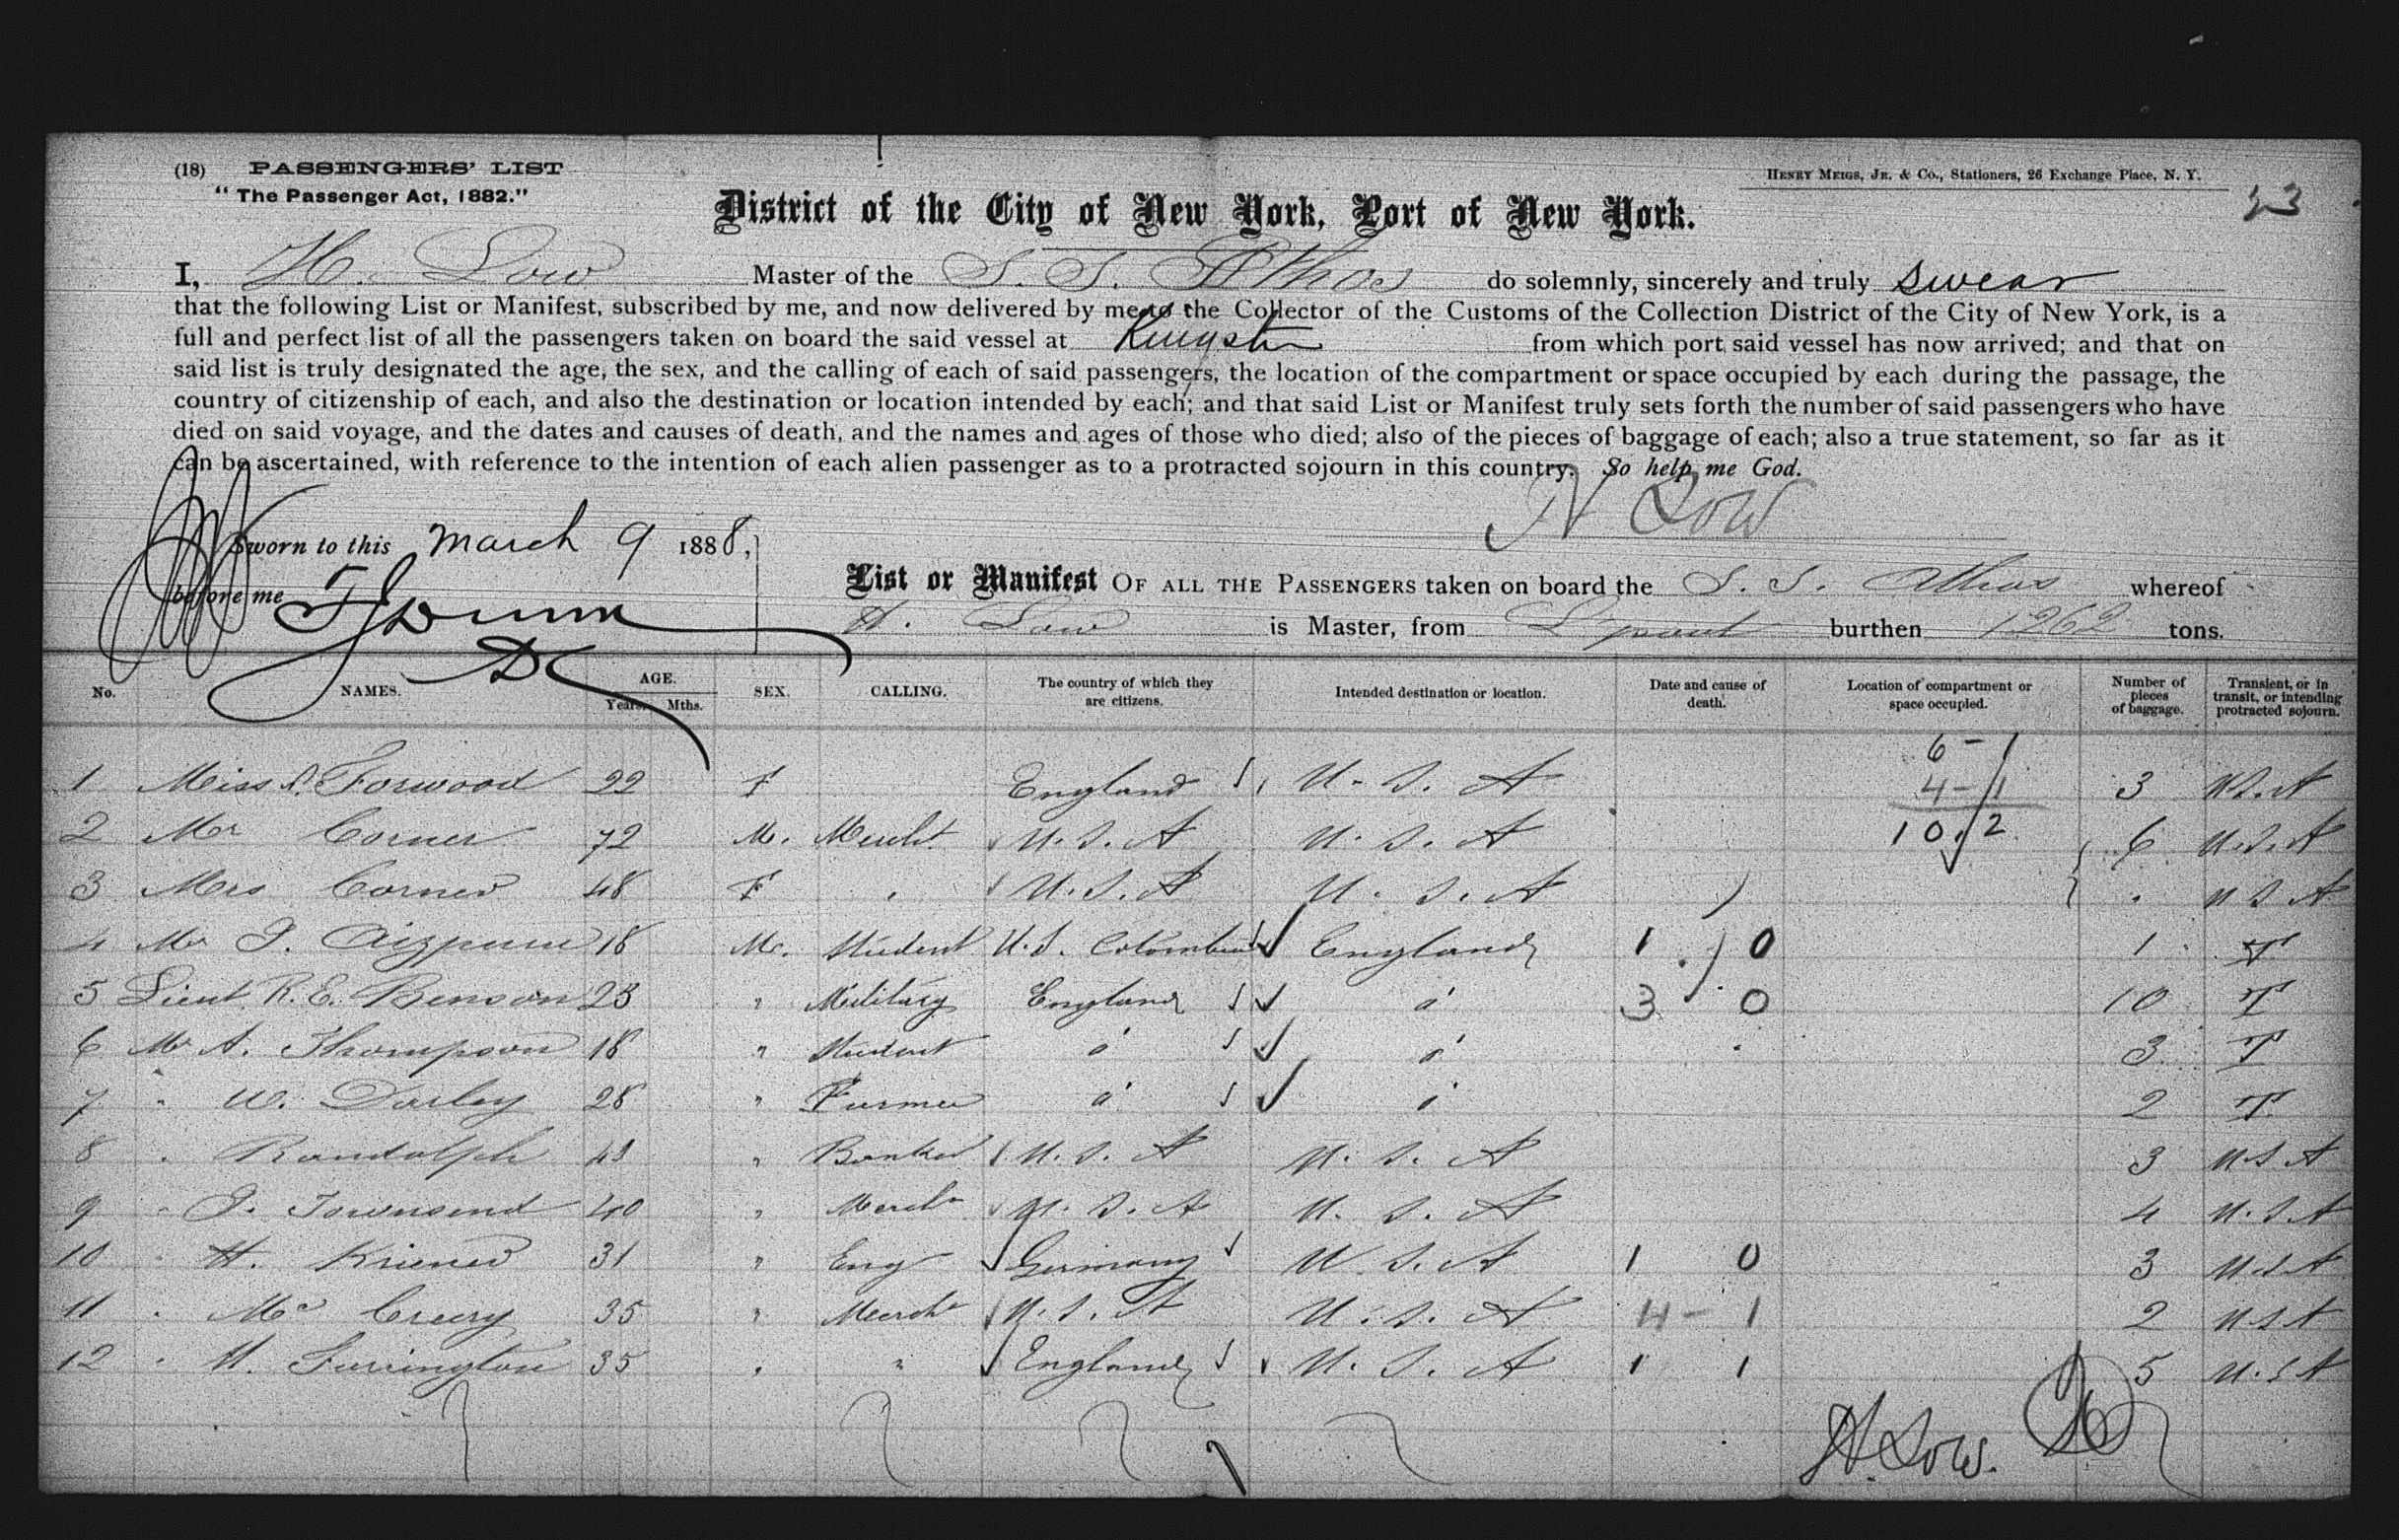 (18) PASSENGERS' LIST
"The Passenger Act, 1882."
HENRY MEIGS, JR. & CO., Stationers, 26 Exchange Place, N. Y.
23
District of the City of New York, Port of New York.
I, H. Low Master of the S. S. Athos do solemnly, sincerely and truly swear
that the following List or Manifest, subscribed by me, and now delivered by me to the Collector of the Customs of the Collection District of the City of New York, is a
full and perfect list of all the passengers taken on board the said vessel at Kingston from which port said vessel has now arrived; and that on
said list is truly designated the age, the sex, and the calling of each of said passengers, the location of the compartment or space occupied by each during the passage, the
country of citizenship of each, and also the destination or location intended by each; and that said List or Manifest truly sets forth the number of said passengers who have
died on said voyage, and the dates and causes of death, and the names and ages of those who died; also of the pieces of baggage of each; also a true statement, so far as it
can be ascertained, with reference to the intention of each alien passenger as to a protracted sojourn in this country. So help me God.
H Low
Sworn to this March 9 1888,
before me
List or Manifest OF ALL THE PASSENGERS taken on board the S. S. Athos whereof
H. Low is Master, from burthen 1262 tons.
No. NAMES. AGE. Years. Mths. SEX. CALLING. The country of which they are citizens. Intended destination or location. Date and cause of death. Location of compartment or space occupied. Number of pieces of baggage. Transient, or in transit, or intending protracted sojourn.
6 - 1
1 Miss Forwood 22 F England U. S. A 4 - 1 3 U.S.A
2 Mr Corner 72 M. Mercht U.S.A U.S.A 10 / 2 6 U.S.A
3 Mrs Corner 48 F " U.S.A U.S.A " U S A
4 Mr J. Aizpuru 18 M. Student U.S. Colombia England 1 0 1 T
5 Lieut R. E. Benson 23 " Military England " 3 0 10 T
6 Mr A. Thompson 18 " Student " " 3 T
7 " W. Darley 28 " Farmer " " 2 T
8 " Randolph " Banker U.S.A U.S.A 3 U S A
9 " J. Townsend 40 " Mercht U.S.A U.S.A 4 U.S.A
10 " H. 31 " Eng Germany U.S.A 1 0 3 U S A
11 " Mc Creery 35 " Mercht U.S.A U.S.A 4 - 1 2 U S A
12 " H. Farrington 35 " " England U.S.A 1 1 5 U.S A
H. Low.